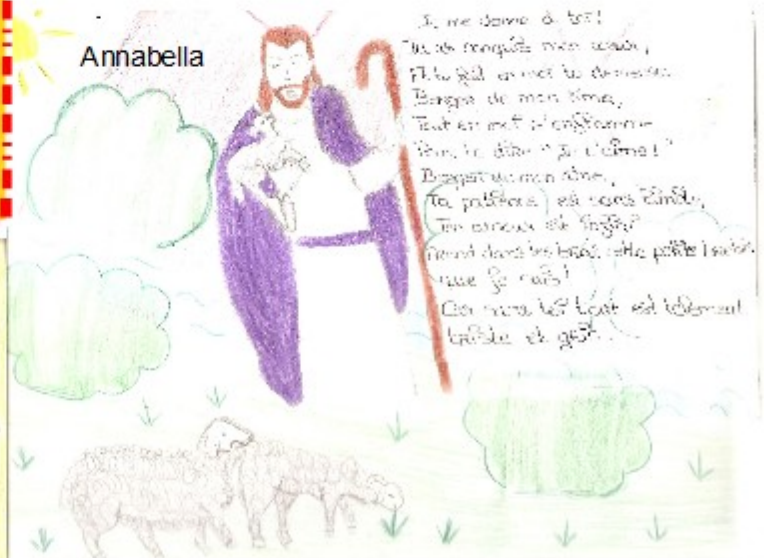 Annabella
Je me donne à toi!
Tu as conquis mon cœur,
Et tu fais en moi ta demeure
Berger de mon âme,
Tout en moi s'enflamme
Pour te dire "Je t'aime!"
Berger de mon âme,
Ta patience est sans limite,
Ton amour est infini!
Prend dans tes bras cette petite
que je suis!
Car sans toi tout est tellement
triste et gris...